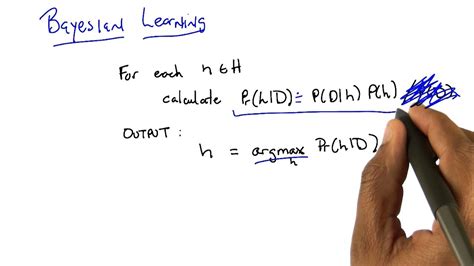 Bayesian Learning
For each h ∈ H
calculate Pr(h|D) ≐ P(D|h) P(h)
OUTPUT :
h = argmax Pr(h|D)
h